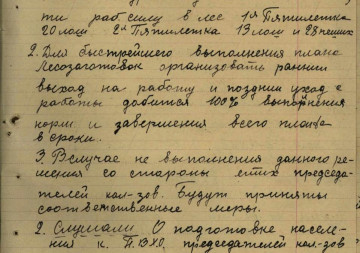 ти рабсилу в лес 1я Пятилетка
20 лош 2я Пятилетка 13 лош и 28 пеших
2. Для быстрейшего выполнения плана
Лесозаготовок организовать ранний
выход на работу и поздний уход с
работы добится 100% выполнения
норм и завершения всего плана
в сроки.
3. Вслучае не выполнения данного ре-
шения со стороны етих председа-
телей кол-зов. Будут приняты
соответственные меры.
2. Слушали О подготовке населе-
ния к П.ВХО, председателей кол-зов